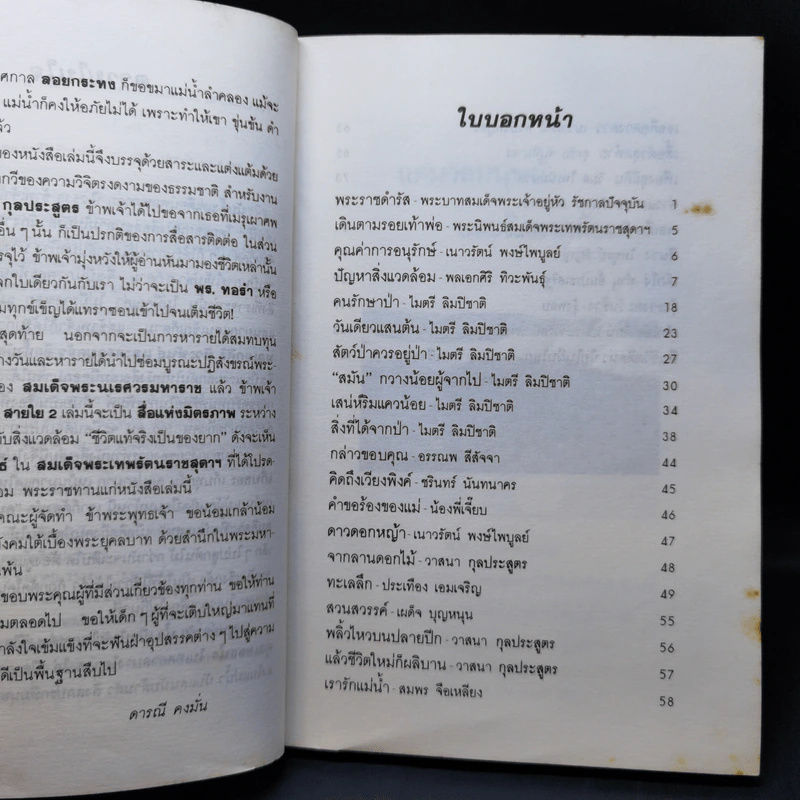 ศกาล ลอยกระทง ก็ขอขมาแม่น้ำลำคลอง แม้จะ
แม่น้ำก็คงให้อภัยไม่ได้ เพราะทำให้เขา ขุ่นข้น ดำ
ล้ว
องหนังสือเล่มนี้จึงบรรจุด้วยสาระและแต่งแต้มด้วย
กวีของความวิจิตรงดงามของธรรมชาติ สำหรับงาน
กุลประสูตร ข้าพเจ้าได้ไปขอจากเธอที่ไม่รู้เผาศพ
อื่นๆนั้น ก็เป็นปรกติของการสื่อสารติดต่อ ในส่วน
จุไว้ ข้าพเจ้ามุ่งหวังให้ผู้อ่านหันมามองชีวิตเหล่านั้น
ลกใบเดียวกันกับเรา ไม่ว่าจะเป็น พร. ทอร่า หรือ
มทุกข์เข็ญได้แทราซอนเข้าไปจนเต็มชีวิต!
สุดท้าย นอกจากจะเป็นการหารายได้สมทบทุน
างวันและหารายได้นำไปซ่อมบูรณะปฏิสังขรณ์พระ-
อง สมเด็จพระนเรศวรมหาราช แล้ว ข้าพเจ้า
สายใย 2 เล่มนี้จะเป็น สื่อแห่งมิตรภาพ ระหว่าง
ับสิ่งแวดล้อม “ชีวิตแท้จริงเป็นของยาก” ดังจะเห็น
ธ์ ใน สมเด็จพระเทพรัตนราชสุดาฯ ที่ได้โปรด-
อม พระราชทานแก่หนังสือเล่มนี้
คณะผู้จัดทำ ข้าพระพุทธเจ้า ขอน้อมเกล้าน้อม
ังคมใต้เบื้องพระยุคลบาท ด้วยสำนึกในพระมหา-
พ้น
ขอบพระคุณผู้ที่มีส่วนเกี่ยวข้องทุกท่าน ขอให้ท่าน
มตลอดไป ขอให้เด็กๆผู้ที่จะเติบใหญ่มาแทนที่
ำลังใจเข้มแข็งที่จะฟันฝ่าอุปสรรคต่างๆไปสู่ความ
ดีเป็นพื้นฐานสืบไป
ดารณี คงมั่น
ใบบอกหน้า
พระราชดำรัส - พระบาทสมเด็จพระเจ้าอยู่หัว รัชกาลปัจจุบัน 1
เดินตามรอยเท้าพ่อ - พระนิพนธ์สมเด็จพระเทพรัตนราชสุดาฯ 5
คุณค่าการอนุรักษ์ - เนาวรัตน์ พงษ์ไพบูลย์ 6
ปัญหาสิ่งแวดล้อม - พลเอกศิริ ทิวะพันธุ์ 7
คนรักษาป่า - ไมตรี ลิมปิชาติ 18
วันเดียวแสนต้น - ไมตรี ลิมปิชาติ 23
สัตว์ป่าควรอยู่ป่า - ไมตรี ลิมปิชาติ 27
“สมัน” กวางน้อยผู้จากไป - ไมตรี ลิมปิชาติ 30
เสน่ห์ริมแควน้อย - ไมตรี ลิมปิชาติ 34
สิ่งที่ได้จากป่า - ไมตรี ลิมปิชาติ 38
กล่าวขอบคุณ - อรรณพ สีสัจจา 44
คิดถึงเวียงพิงค์ - ชรินทร์ นันทนาคร 45
คำขอร้องของแม่ - น้องพี่เจี๊ยบ 46
ดาวดอกหญ้า - เนาวรัตน์ พงษ์ไพบูลย์ 47
จากลานดอกไม้ - วาสนา กุลประสูตร 48
ทะเลลึก - ประเทือง เอมเจริญ 49
สวนสวรรค์ - เผด็จ บุญหนุน 55
พลิ้วไหวบนปลายปีก - วาสนา กุลประสูตร 56
แล้วชีวิตใหม่ก็ผลิบาน - วาสนา กุลประสูตร 57
เรารักแม่น้ำ - สมพร จือเหลียง 58